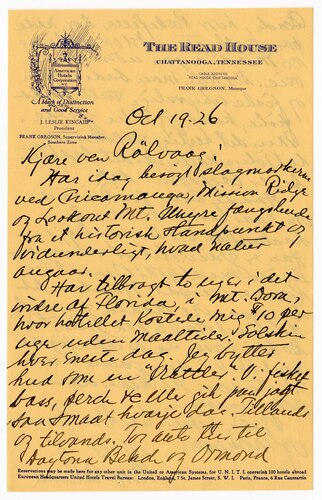 American
Hotels
Corporation
A Mark of Distinction
and Good Service
J. LESLIE KINCAID
President
FRANK GREGSON, Supervising Manager,
Southern Zone
THE READ HOUSE
CHATTANOOGA, TENNESSEE
CABLE ADDRESS
READ HOUSE CHATTANOOGA
FRANK GREGSON, Manager
Oct 1926
Kjære ven Rölvaag!
Har idag besøgt slagmarkerne
ved Chicamauga, Mission Ridge
og Lookout Mt. Uhyre fængslende
fra et historisk Standpunkt og
vidunderligt, hvad natur
angaar.
Har tilbragt to uger i det
indre af Florida, i Mt. Dora,
hvor hotellet kostede mig $10 per
uge uden maaltider. Solskin
hver eneste dag. Jeg bytter
hud som en "Rattler". Vi fisket
bass, perch & eller gik paa jagt
saa smaat hverje dag. Tillands
og tilvands. For auto the til
Daytona Beach og Ormond
Reservations may be made here for any other unit in the United or Affiliated Systems, for U. N. I. T. I. operating 100 hotels abroad
European Headquarters United Hotels Travel Bureau: London, England, 7 St. James Street, S. W. I. Paris, France, 4 Rue Caumartin